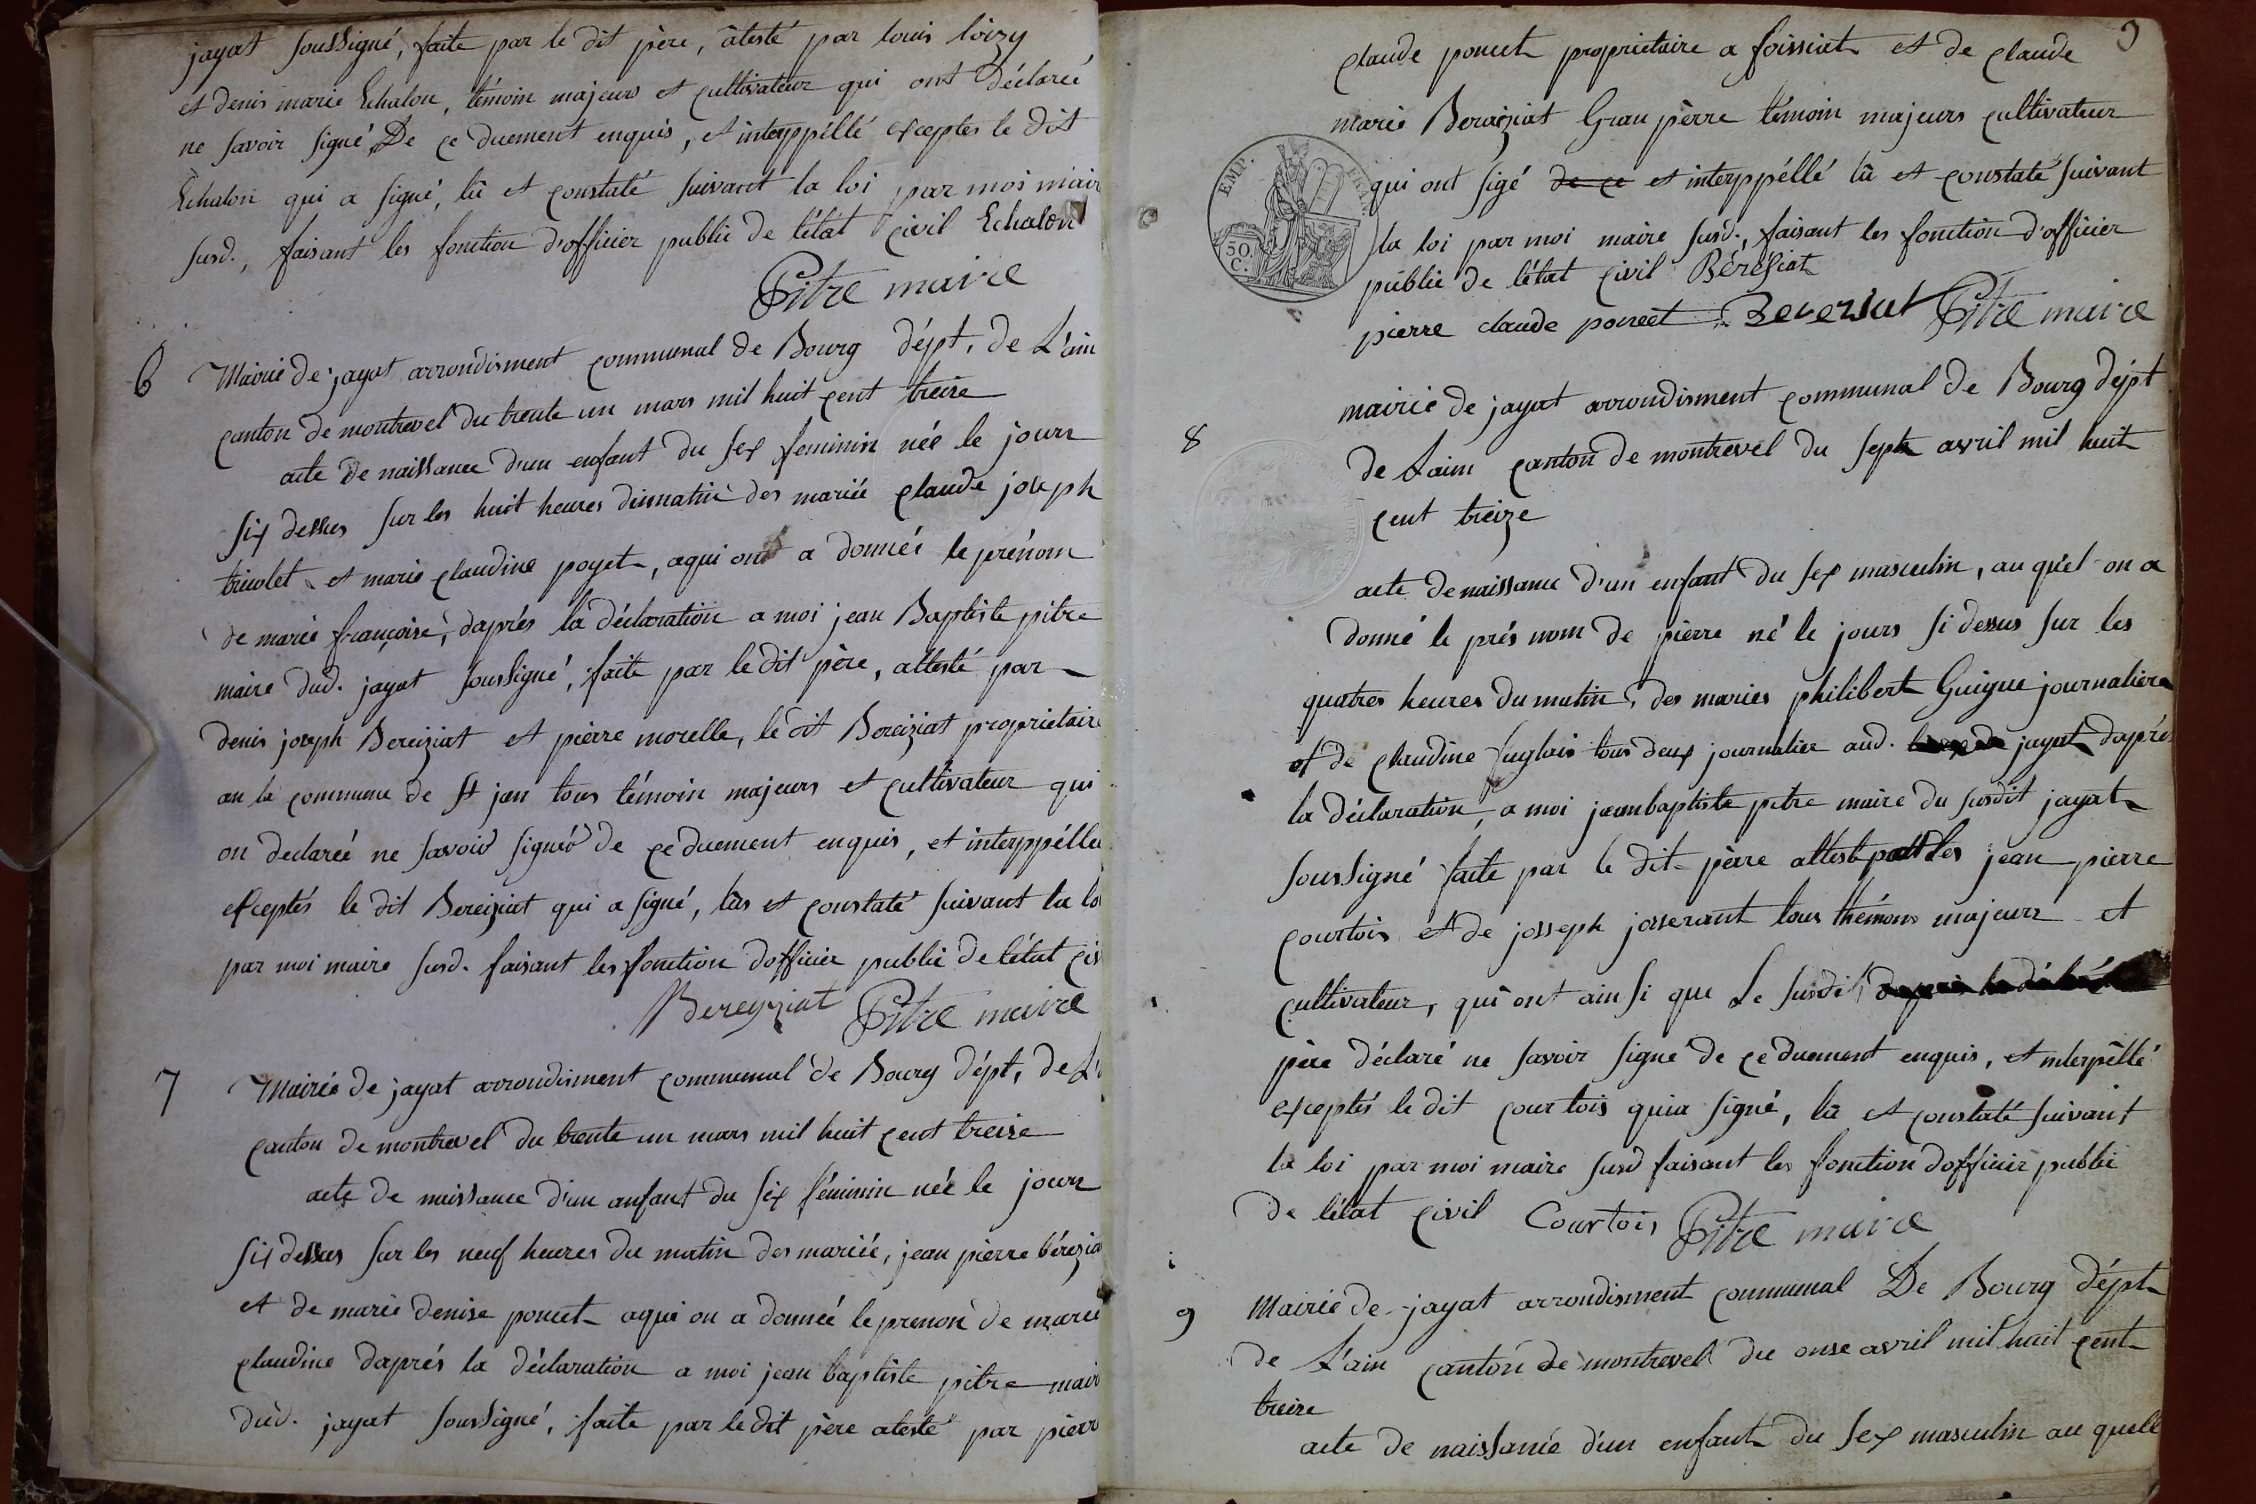 jayat soussigné, faite par le dit père, âtesté par louis loizy
et denis marie Echalon, témoin majeurs et cultivateur qui ont déclareé
ne savoir signé, De ce duement enquis, et interppéllé exceptes le dit
Echalon qui a signé, lû et constaté suivant la loi par moi mair
susd., faisant les fonction d'officier public de l'état civil Echalon
Pitre maire
6
Mairie de jayat arrondisment communal de Bourg dépt, de L'ain
canton de montrevel du trente un mars mil huit cent treise
acte de naissance d'un enfant du sex feminin née le jours
six dessus sur les huit heures dumatin des mariée claude joseph
tricolet et marie claudine poyet, aqui ont a donnée le prénom
de marie françoise, daprés la déclaration a moi jean Baptiste pitre
maire dud. jayat soussigné, faite par le dit père, attesté par
denis joseph Bereiziat et pierre morelle, le dit Bereiziat proprietaire
au la commune de st jan tous témoin majeurs et cultivateur qui
on declareé ne savoir signér de ce duement enquis, et interppélle
exceptés le dit Bereiziat qui a signé, lûs et constaté suivant la loi
par moi maire susd. faisant les fonction dofficier public de l'état civ
Bereyziat Pitre maire
7
Mairie de jayat arrondisment communal de Bourg dépt, de L'
canton de montrevel du trente un mars mil huit cent treise
acte de naissance d'un anfant du six féminin née le jours
six dessus sur les neuf heures du matin des mariée, jean pierre bérezia
et de marie denise poncet aqui on a donnée le prenon de marie
claudine daprés la déclaration a moi jean baptiste pitre mair
dud. jayat soussigné, faite par le dit père atesté par pierr
9
claude poncet proprietaire a foissiat et de claude
marie Beraiziat Gran pèrre témoin majeurs cultivateur
EMP. FRAN.
qui ont sigé de ce et interppéllé lû et constaté suivant
la loi par moi maire susd., faisant les fonction d'officier
50. C.
public de l'état civil Béréziat
pierre claude poncet Berersiat Pitre maire
8
mairie de jayat arrondisment communal de Bourg dépt
de Lain canton de montrevel du sept avril mil huit
cent treize
acte de naissance d'un enfant du sex masculin, au quel on a
donné le prés nom de pierre né le jours si dessus sur les
quatres heures du matin, des maries philibert Guigue journaliere
et de claudine Juglais tous deux journalier aud. jayat daprés
la déclaration, a moi jeanbaptiste pitre maire du susdit jayat
soussigné faite par le dit pèrre attesté par les jean pierre
courtois et de josseph josserant tous thémons majeurs et
cultivateur, qui ont ain si que Le susdit daprés la décla
père déclaré ne savoir signé de ce duement enquis, et interpéllé
exceptés le dit courtois quia signé, lû et constaté suivant
la loi par moi maire susd faisant les fonction dofficier public
de l'état civil Courtois Pitre maire
9
Mairie de jayat arrondisment communal De Bourg dépt
de L'ain canton de montrevel du onse avril mil huit cent
treise
acte de naissanie d'un enfant du sex masculin au quell